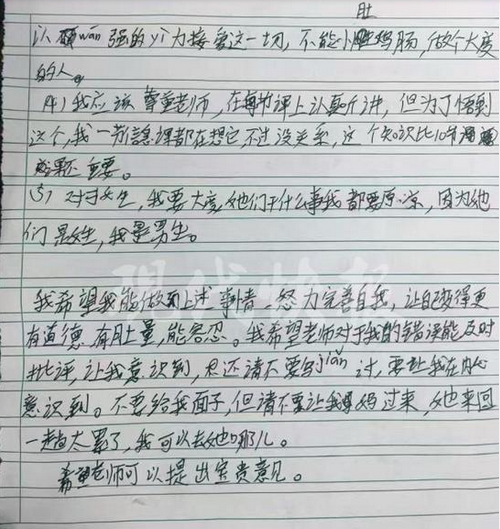 肚
以顽wán强的yì力接受这一切,不能小鸡肠,做个大度
的人。
(4)我应该尊重老师,在每节课上认真听讲,但为了悟到
这个,我一节课都在想它不过没关系,这个知识比10节课
还重要。
(5)对于女生,我要大度她们干什么事我都要原凉,因为她
们是女生,我是男生。
现代快报
我希望我能做到上述事情,努力完善自我,让自己变得更
有道德,有肚量,能容忍。我希望老师对于我的错误能及时
批评,让我意识到,但还请不要写jiǎn讨,要让我在内心
意识到。不要给我面子,但请不要让我妈过来,她来回
一趟太累了,我可以去她哪儿。
希望老师可以提出宝贵意见。